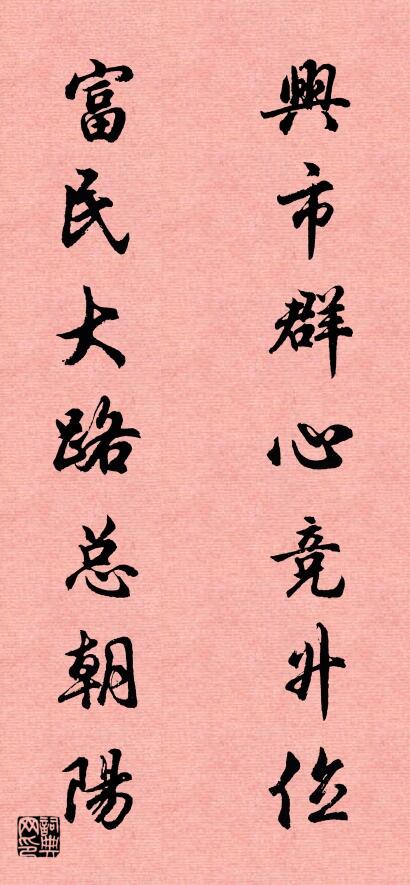 興市群心竞升位
富民大路总朝陽
詞典网印